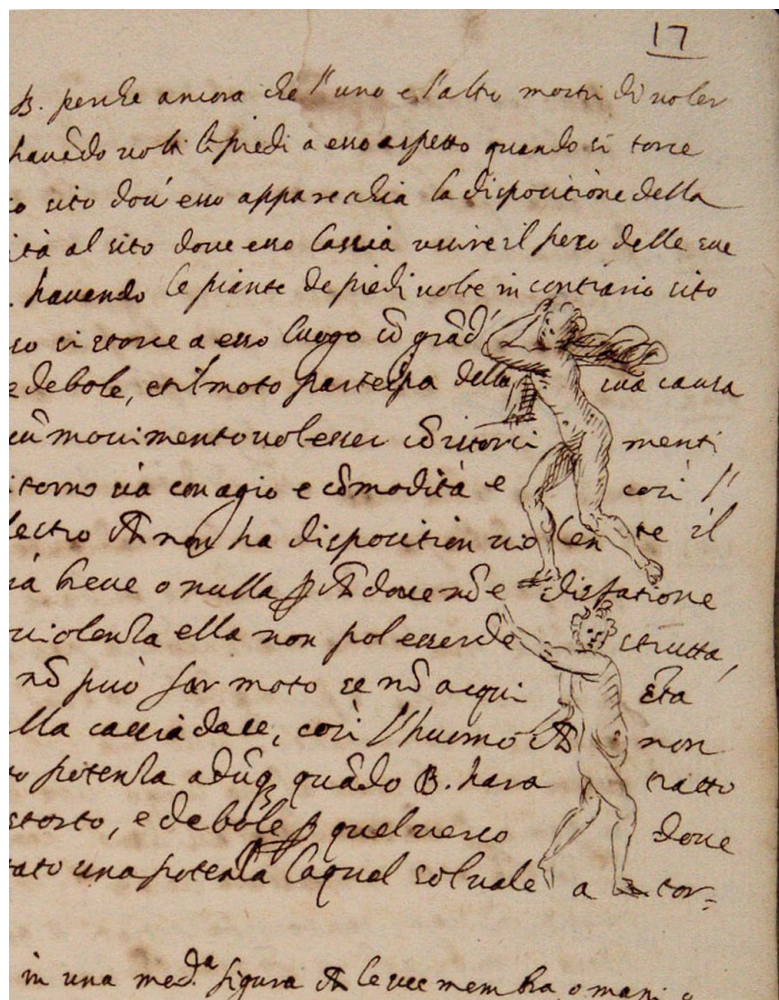 17
B. perche ancora che l'uno e l'altro mostri di voler
havēdo volti li piedi a esso aspetto quando si torce
sito dov' esso apparecchia la dispositione della
ità al sito dove esso lassia uscire il peso delle sue
havendo le piante de piedi volte in contrario sito
so si storce a esso luogo cō grād'
e debole, et il moto partecipa della sua causa
movimento vol esser cō ritorci menti
itorno sia con agio e cōmodità e così l'
non ha disposition violen te il
breve o nulla dove nō e disfatione
violentia ella non pol esser de strutta,
nō può far moto se nō acqui sta
lla caccia dare, così l'huomo A non
potentia adūq quādo B. hara tratto
storto, e debole quel verso dove
tato una potentia laqual solvale a tor=
in una med.a figura le sue membra, o mani